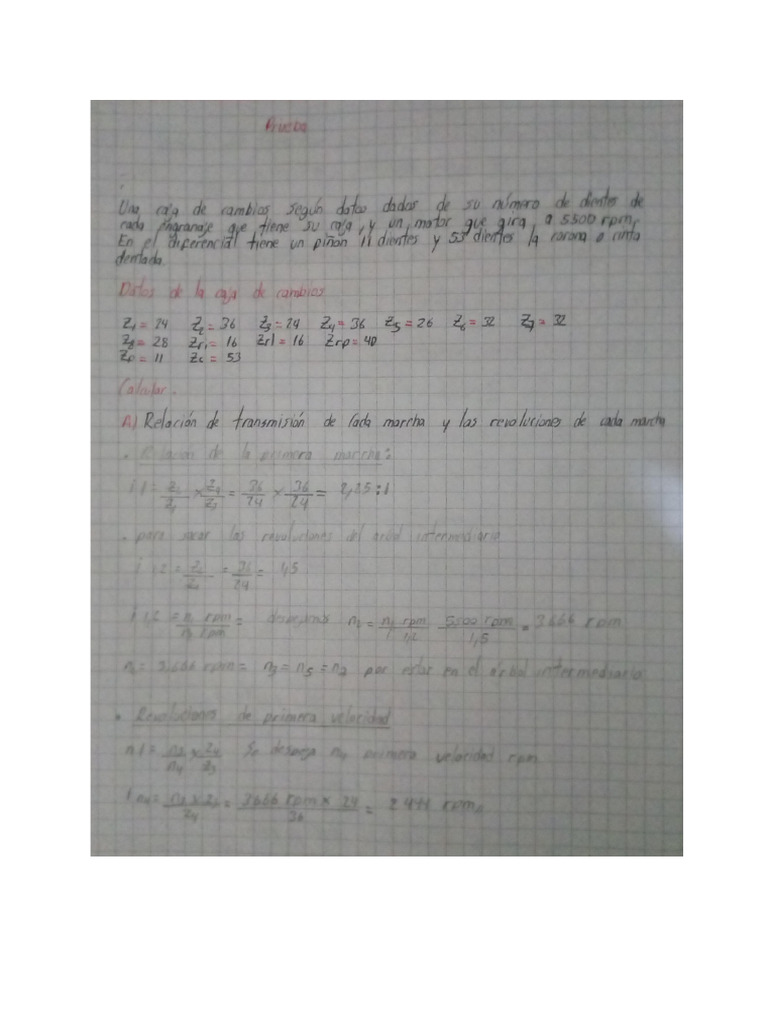 Prueba
Una caja de cambios según datos dados de su número de dientes de
cada engranaje que tiene su caja, y un motor que gira a 5500 rpm,
En el diferencial tiene un piñon 11 dientes y 53 dientes la corona o cinta
dentada.
Datos de la caja de cambios
Z1 = 24 Z2 = 36 Z3 = 24 Z4 = 36 Z5 = 26 Z6 = 32 Z7 = 32
Z8 = 28 Zri = 16 Zrl = 16 Zrp = 40
Zp = 11 Zc = 53
Calcular.
A) Relación de transmisión de cada marcha y las revoluciones de cada marcha
• Relación de la primera marcha:
i1 = Z2/Z1 x Z4/Z3 = 36/24 x 36/24 = 2,25:1
• para sacar las revoluciones del arbol intermediario
i 1,2 = Z2/Z1 = 36/24 = 1,5
i 1,2 = n1 rpm/n2 rpm = n2 = n1 rpm/i 1,2 5500 rpm/1,5 = 3.666 rpm
n2 = 3.666 rpm = n3 = n5 = n7 por estar en el arbol intermediario
• Revoluciones de primera velocidad
Se despeja n4 primera velocidad rpm
n4 = n3 x Z3/Z4 = 3666 rpm x 24/36 = 2444 rpm